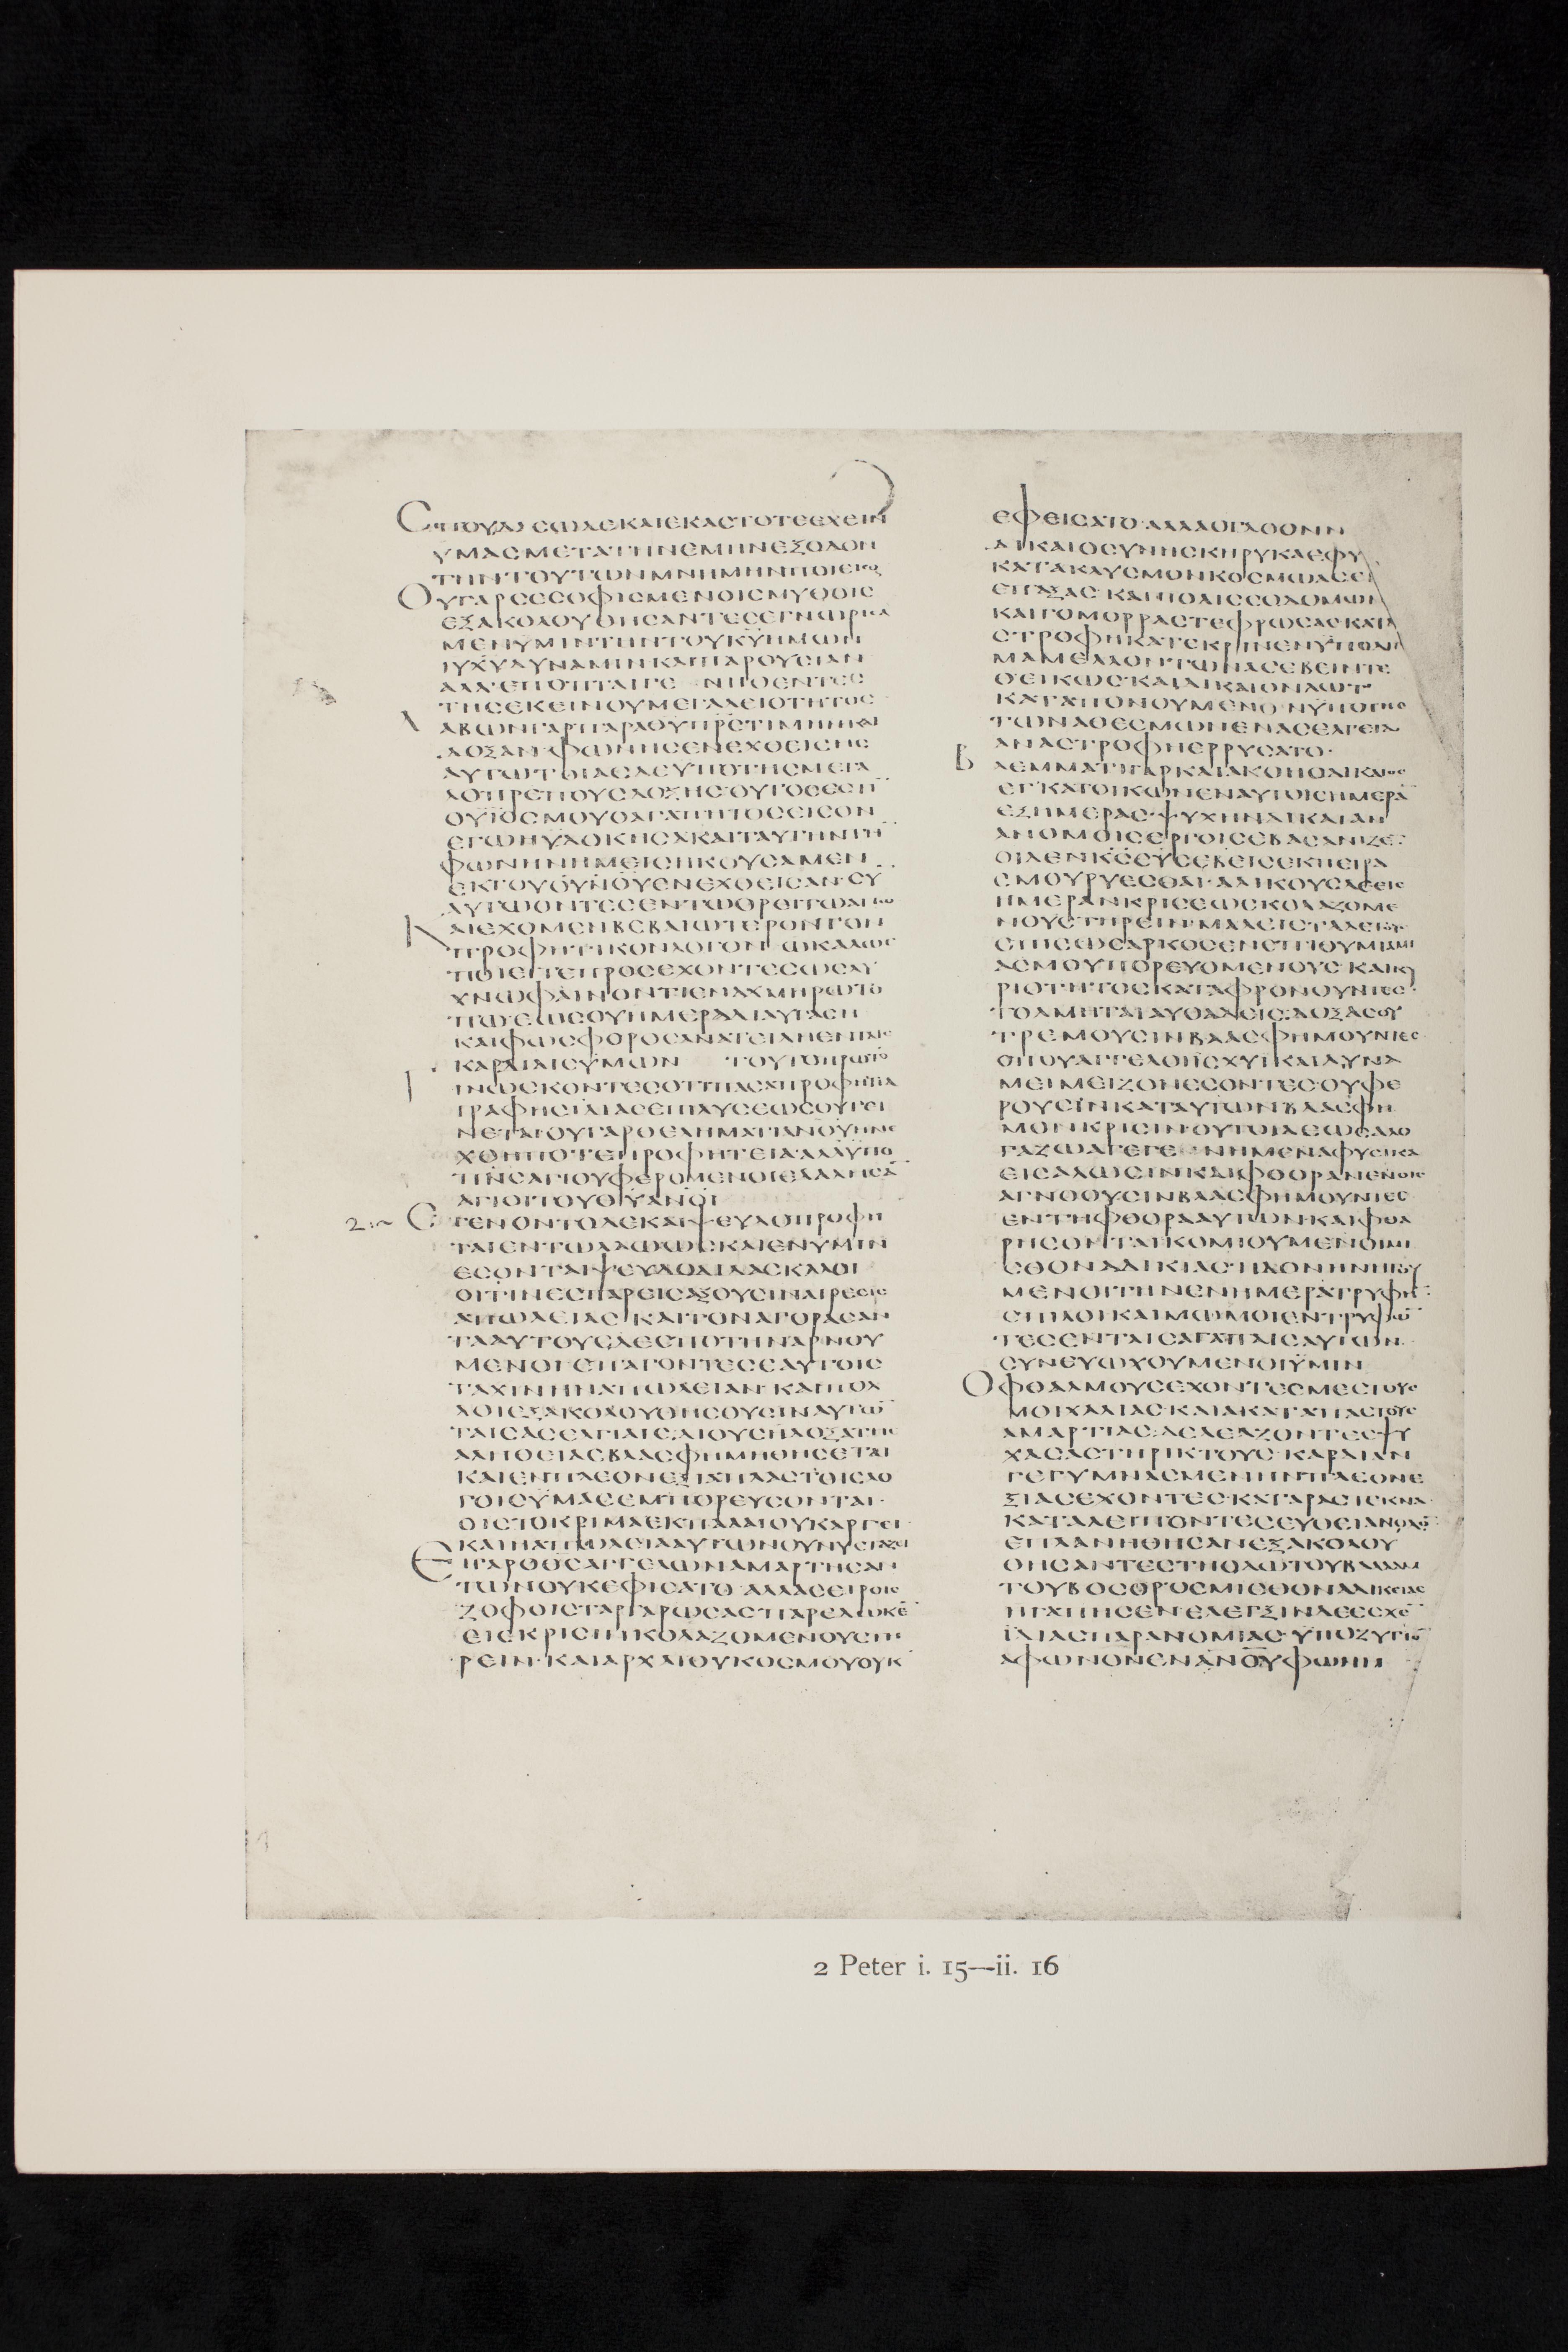 ϹΠΟΥΔΑϹΩΔΕΚΑΙΕΚΑϹΤΟΤΕΕΧΕΙΝ
ΥΜΑϹΜΕΤΑΤΗΝΕΜΗΝΕΞΟΔΟΝ
ΤΗΝΤΟΥΤΩΝΜΝΗΜΗΝΠΟΙΕΙϹΘ
ΟΥΓΑΡϹΕϹΟΦΙϹΜΕΝΟΙϹΜΥΘΟΙϹ
ΕΞΑΚΟΛΟΥΘΗϹΑΝΤΕϹΕΓΝΩΡΙϹΑ
ΜΕΝΥΜΙΝΤΗΝΤΟΥΚΥΗΜΩΝ
ΙΥΧΥΔΥΝΑΜΙΝΚΑΙΠΑΡΟΥϹΙΑΝ
ΑΛΛΕΠΟΠΤΑΙΓΕ ΝΗΘΕΝΤΕϹ
ΤΗϹΕΚΕΙΝΟΥΜΕΓΑΛΕΙΟΤΗΤΟϹ
ΛΑΒΩΝΓΑΡΠΑΡΑΘΥΠΡϹΤΙΜΗΝΚΑΙ
ΔΟΞΑΝ·ΦΩΝΗϹΕΝΕΧΘΕΙϹΗϹ
ΑΥΤΩΤΟΙΑϹΔΕΥΠΟΤΗϹΜΕΓΑ
ΛΟΠΡΕΠΟΥϹΔΟΞΗϹ·ΟΥΤΟϹΕϹΤΙ
ΟΥΪΟϹΜΟΥΟΑΓΑΠΗΤΟϹΕΙϹΟΝ
ΕΓΩΗΥΔΟΚΗϹΑΚΑΙΤΑΥΤΗΝΤΗ
ΦΩΝΗΝΗΜΕΙϹΗΚΟΥϹΑΜΕΝ
ΕΚΤΟΥΟΥΝΟΥΕΝΕΧΘΕΙϹΑΝ·ϹΥ
ΑΥΤΩΟΝΤΕϹΕΝΤΩΟΡΕΙΤΩΑΓΙΩ
ΚΑΙΕΧΟΜΕΝΒΕΒΑΙΩΤΕΡΟΝΤΟΝ
ΠΡΟΦΗΤΙΚΟΝΛΟΓΟΝ ΩΚΑΛΩϹ
ΠΟΙΕΙΤΕΠΡΟϹΕΧΟΝΤΕϹΩϹΛΥ
ΧΝΩΦΑΙΝΟΝΤΙΕΝΑΥΧΜΗΡΩΤΟ
ΠΩ·ΕΩϹΟΥΗΜΕΡΑΔΙΑΥΓΑϹΗ
ΚΑΙΦΩϹΦΟΡΟϹΑΝΑΤΕΙΛΗΕΝΤΑΙϹ
ΚΑΡΔΙΑΙϹΥΜΩΝ ΤΟΥΤΟΠΡΩΤΟ
ΓΙΝΩϹΚΟΝΤΕϹΟΤΙΠΑϹΑΠΡΟΦΗΤΙΑ
ΓΡΑΦΗϹΙΔΙΑϹΕΠΙΛΥϹΕΩϹΟΥΓΕΙ
ΝΕΤΑΙ·ΟΥΓΑΡΘΕΛΗΜΑΤΙΑΝΟΥΗΝΕ
ΧΘΗΠΟΤΕΠΡΟΦΗΤΕΙΑΑΛΛΥΠΟ
ΠΝϹΑΓΙΟΥΦΕΡΟΜΕΝΟΙΕΛΑΛΗϹΑ
ΑΓΙΟΙΤΟΥΘΥΑΝΟΙ
2 ΕΓΕΝΟΝΤΟΔΕΚΑΙΨΕΥΔΟΠΡΟΦΗ
ΤΑΙΕΝΤΩΛΑΩΩϹΚΑΙΕΝΥΜΙΝ
ΕϹΟΝΤΑΙΨΕΥΔΟΔΙΔΑϹΚΑΛΟΙ
ΟΙΤΙΝΕϹΠΑΡΕΙϹΑΞΟΥϹΙΝΑΙΡΕϹΕΙϹ
ΑΠΩΛΕΙΑϹ ΚΑΙΤΟΝΑΓΟΡΑϹΑΝ
ΤΑΑΥΤΟΥϹΔΕϹΠΟΤΗΝΑΡΝΟΥ
ΜΕΝΟΙ·ΕΠΑΓΟΝΤΕϹΕΑΥΤΟΙϹ
ΤΑΧΙΝΗΝΑΠΩΛΕΙΑΝ·ΚΑΙΠΟΛ
ΛΟΙΕΞΑΚΟΛΟΥΘΗϹΟΥϹΙΝΑΥΤΩ
ΤΑΙϹΑϹΕΛΓΙΑΙϹ·ΔΙΟΥϹΗΔΟΞΑΤΗϹ
ΑΛΗΘΕΙΑϹΒΛΑϹΦΗΜΗΘΗϹΕΤΑΙ
ΚΑΙΕΝΠΛΕΟΝΕΞΙΑΠΛΑϹΤΟΙϹΛΟ
ΓΟΙϹΥΜΑϹΕΜΠΟΡΕΥϹΟΝΤΑΙ·
ΟΙϹΤΟΚΡΙΜΑΕΚΠΑΛΑΙΟΥΚΑΡΓΕΙ
ΚΑΙΗΑΠΩΛΕΙΑΑΥΤΩΝΟΥΝΥϹΤΑΖΕΙ
ΕΙΓΑΡΟΘϹΑΓΓΕΛΩΝΑΜΑΡΤΗϹΑΝ
ΤΩΝΟΥΚΕΦΙϹΑΤΟ·ΑΛΛΑϹΕΙΡΟΙϹ
ΖΟΦΟΙϹΤΑΡΤΑΡΩϹΑϹΠΑΡΕΔΩΚΕ
ΕΙϹΚΡΙϹΙΝΚΟΛΑΖΟΜΕΝΟΥϹΤΗ
ΡΕΙΝ·ΚΑΙΑΡΧΑΙΟΥΚΟϹΜΟΥΟΥΚ
ΕΦΕΙϹΑΤΟ·ΑΛΛΑΟΓΔΟΟΝΝ
ΔΙΚΑΙΟϹΥΝΗϹΚΗΡΥΚΑΕΦΥ
ΚΑΤΑΚΛΥϹΜΟΝΚΟϹΜΩΑϹΕ
ΕΠΑΞΑϹ·ΚΑΙΠΟΛΙϹϹΟΔΟΜΩΝ
ΚΑΙΓΟΜΟΡΡΑϹΤΕΦΡΩϹΑϹΚΑΤΑ
ϹΤΡΟΦΗΚΑΤΕΚΡΙΝΕΝΥΠΟΔΙ
ΜΑΜΕΛΛΟΝΤΩΝΑϹΕΒΕΙΝΤΕ
ΘΕΙΚΩϹ·ΚΑΙΔΙΚΑΙΟΝΛΩΤ
ΚΑΤΑΠΟΝΟΥΜΕΝΟΝΥΠΟΤΗϹ
ΤΩΝΑΘΕϹΜΩΝΕΝΑϹΕΛΓΕΙΑ
ΑΝΑϹΤΡΟΦΗϹΕΡΡΥϹΑΤΟ·
ΒΛΕΜΜΑΤΙΓΑΡΚΑΙΑΚΟΗΟΔΙΚΑΙΟϹ
ΕΓΚΑΤΟΙΚΩΝΕΝΑΥΤΟΙϹΗΜΕΡΑ
ΕΞΗΜΕΡΑϹ·ΨΥΧΗΝΔΙΚΑΙΑΝ
ΑΝΟΜΟΙϹΕΡΓΟΙϹΕΒΑϹΑΝΙΖΕ·
ΟΙΔΕΝΚϹΕΥϹΕΒΕΙϹΕΚΠΕΙΡΑ
ϹΜΟΥΡΥΕϹΘΑΙ·ΑΔΙΚΟΥϹΔΕΕΙϹ
ΗΜΕΡΑΝΚΡΙϹΕΩϹΚΟΛΑΖΟΜΕ
ΝΟΥϹΤΗΡΕΙΝ·ΜΑΛΙϹΤΑΔΕΤΟΥϹ
ΟΠΙϹΩϹΑΡΚΟϹΕΝΕΠΙΘΥΜΙΑΜΙ
ΑϹΜΟΥΠΟΡΕΥΟΜΕΝΟΥϹ·ΚΑΙΚΥ
ΡΙΟΤΗΤΟϹΚΑΤΑΦΡΟΝΟΥΝΤΕϹ·
ΤΟΛΜΗΤΑΙΑΥΘΑΔΕΙϹ·ΔΟΞΑϹΟΥ
ΤΡΕΜΟΥϹΙΝΒΛΑϹΦΗΜΟΥΝΤΕϹ
ΟΠΟΥΑΓΓΕΛΟΙΙϹΧΥΙΚΑΙΔΥΝΑ
ΜΕΙΜΕΙΖΟΝΕϹΟΝΤΕϹ·ΟΥΦΕ
ΡΟΥϹΙΝΚΑΤΑΥΤΩΝΒΛΑϹΦΗ
ΜΟΝΚΡΙϹΙΝ·ΟΥΤΟΙΔΕΩϹΑΛΟ
ΓΑΖΩΑΓΕΓΕ ΝΗΜΕΝΑΦΥϹΙΚΑ
ΕΙϹΑΛΩϹΙΝΚΑΙΦΘΟΡΑΝΕΝΟΙϹ
ΑΓΝΟΟΥϹΙΝΒΛΑϹΦΗΜΟΥΝΤΕϹ
ΕΝΤΗΦΘΟΡΑΑΥΤΩΝΚΑΙΦΘΑ
ΡΗϹΟΝΤΑΙΚΟΜΙΟΥΜΕΝΟΙΜΙ
ϹΘΟΝΑΔΙΚΙΑϹ·ΗΔΟΝΗΝΗΓΟΥ
ΜΕΝΟΙΤΗΝΕΝΗΜΕΡΑΤΡΥΦΗ
ϹΠΙΛΟΙΚΑΙΜΩΜΟΙΕΝΤΡΥΦΩ
ΤΕϹΕΝΤΑΙϹΑΓΑΠΑΙϹΑΥΤΩΝ·
ϹΥΝΕΥΩΧΟΥΜΕΝΟΙΫΜΙΝ
ΟΦΘΑΛΜΟΥϹΕΧΟΝΤΕϹΜΕϹΤΟΥϹ
ΜΟΙΧΑΛΙΑϹ·ΚΑΙΑΚΑΤΑΠΑϹΤΟΥϹ
ΑΜΑΡΤΙΑϹ·ΔΕΛΕΑΖΟΝΤΕϹΨΥ
ΧΑϹΑϹΤΗΡΙΚΤΟΥϹ·ΚΑΡΔΙΑΝ
ΓΕΓΥΜΝΑϹΜΕΝΗΝΠΛΕΟΝΕ
ΞΙΑϹΕΧΟΝΤΕϹ·ΚΑΤΑΡΑϹΤΕΚΝΑ·
ΚΑΤΑΛΕΙΠΟΝΤΕϹΕΥΘΕΙΑΝΟΔΟ
ΕΠΛΑΝΗΘΗϹΑΝΕΞΑΚΟΛΟΥ
ΘΗϹΑΝΤΕϹΤΗΟΔΩΤΟΥΒΑΛΑΑΜ
ΤΟΥΒΟϹΟΡΟϹΜΙϹΘΟΝΑΔΙΚΕΙΑϹ
ΗΓΑΠΗϹΕΝ·ΕΛΕΓΞΙΝΔΕΕϹΧΕ
ΙΔΙΑϹΠΑΡΑΝΟΜΙΑϹ·ΥΠΟΖΥΓΙΟ
ΑΦΩΝΟΝΕΝΑΝΟΥΦΩΝΗ
2 Peter i. 15—ii. 16